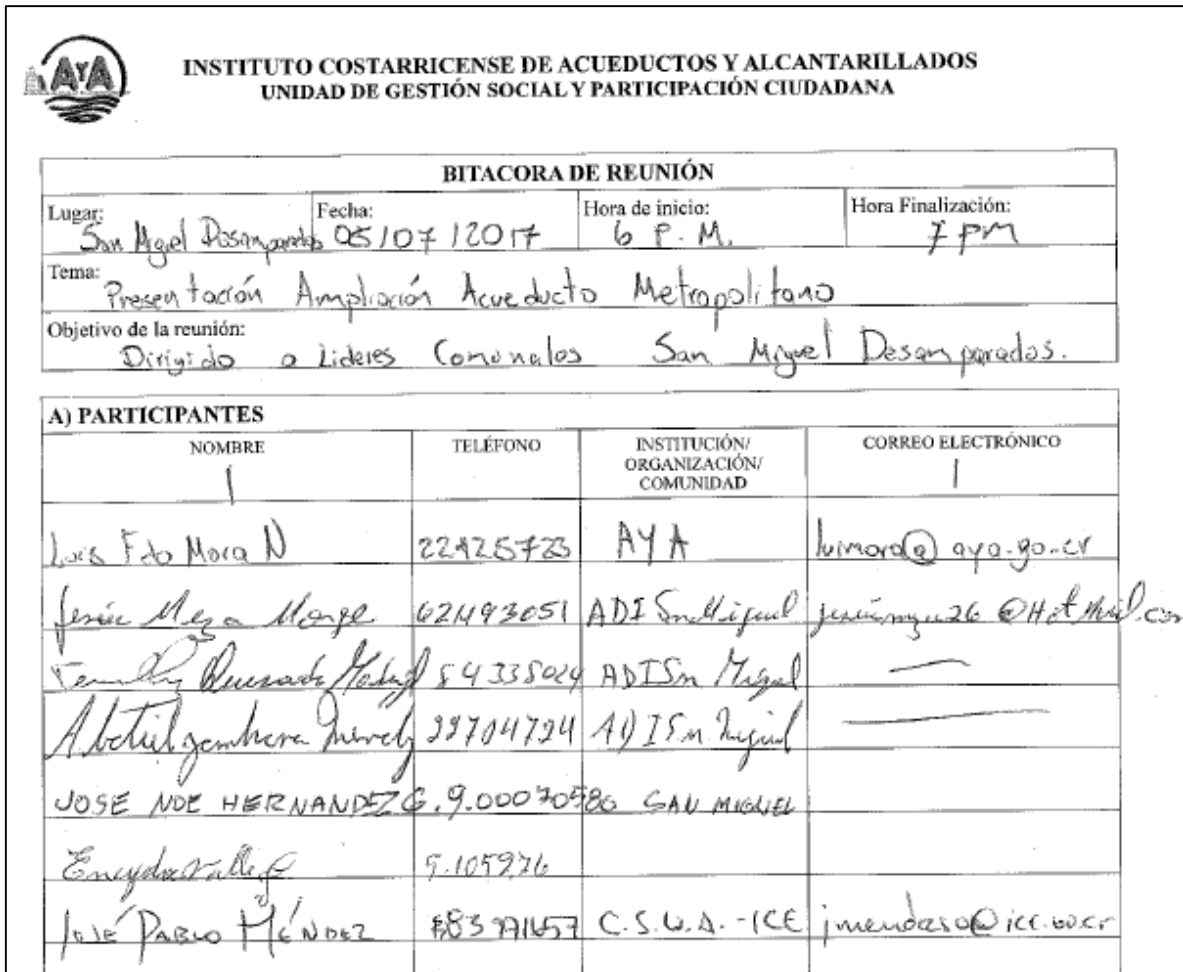 AYA
INSTITUTO COSTARRICENSE DE ACUEDUCTOS Y ALCANTARILLADOS
UNIDAD DE GESTIÓN SOCIAL Y PARTICIPACIÓN CIUDADANA
BITACORA DE REUNIÓN
Lugar: San Miguel Desamparados Fecha: 05/07/2017 Hora de inicio: 6 P.M. Hora Finalización: 7 PM
Tema: Presentación Ampliación Acueducto Metropolitano
Objetivo de la reunión:
Dirigido a Lideres Comunales San Miguel Desamparados.
A) PARTICIPANTES
NOMBRE TELÉFONO INSTITUCIÓN/ ORGANIZACIÓN/ COMUNIDAD CORREO ELECTRÓNICO
Luis Fdo Mora N 22425723 AYA lumora@aya.go.cr
Meza 62493051 ADI Sn Miguel
Quesada 54335024 ADI Sn Miguel
ADI Sn Miguel
JOSE NOE HERNANDEZ G. 9.00070586 SAN MIGUEL
5.105976
JOSÉ PABLO MÉNDEZ C.S.W.A.-ICE